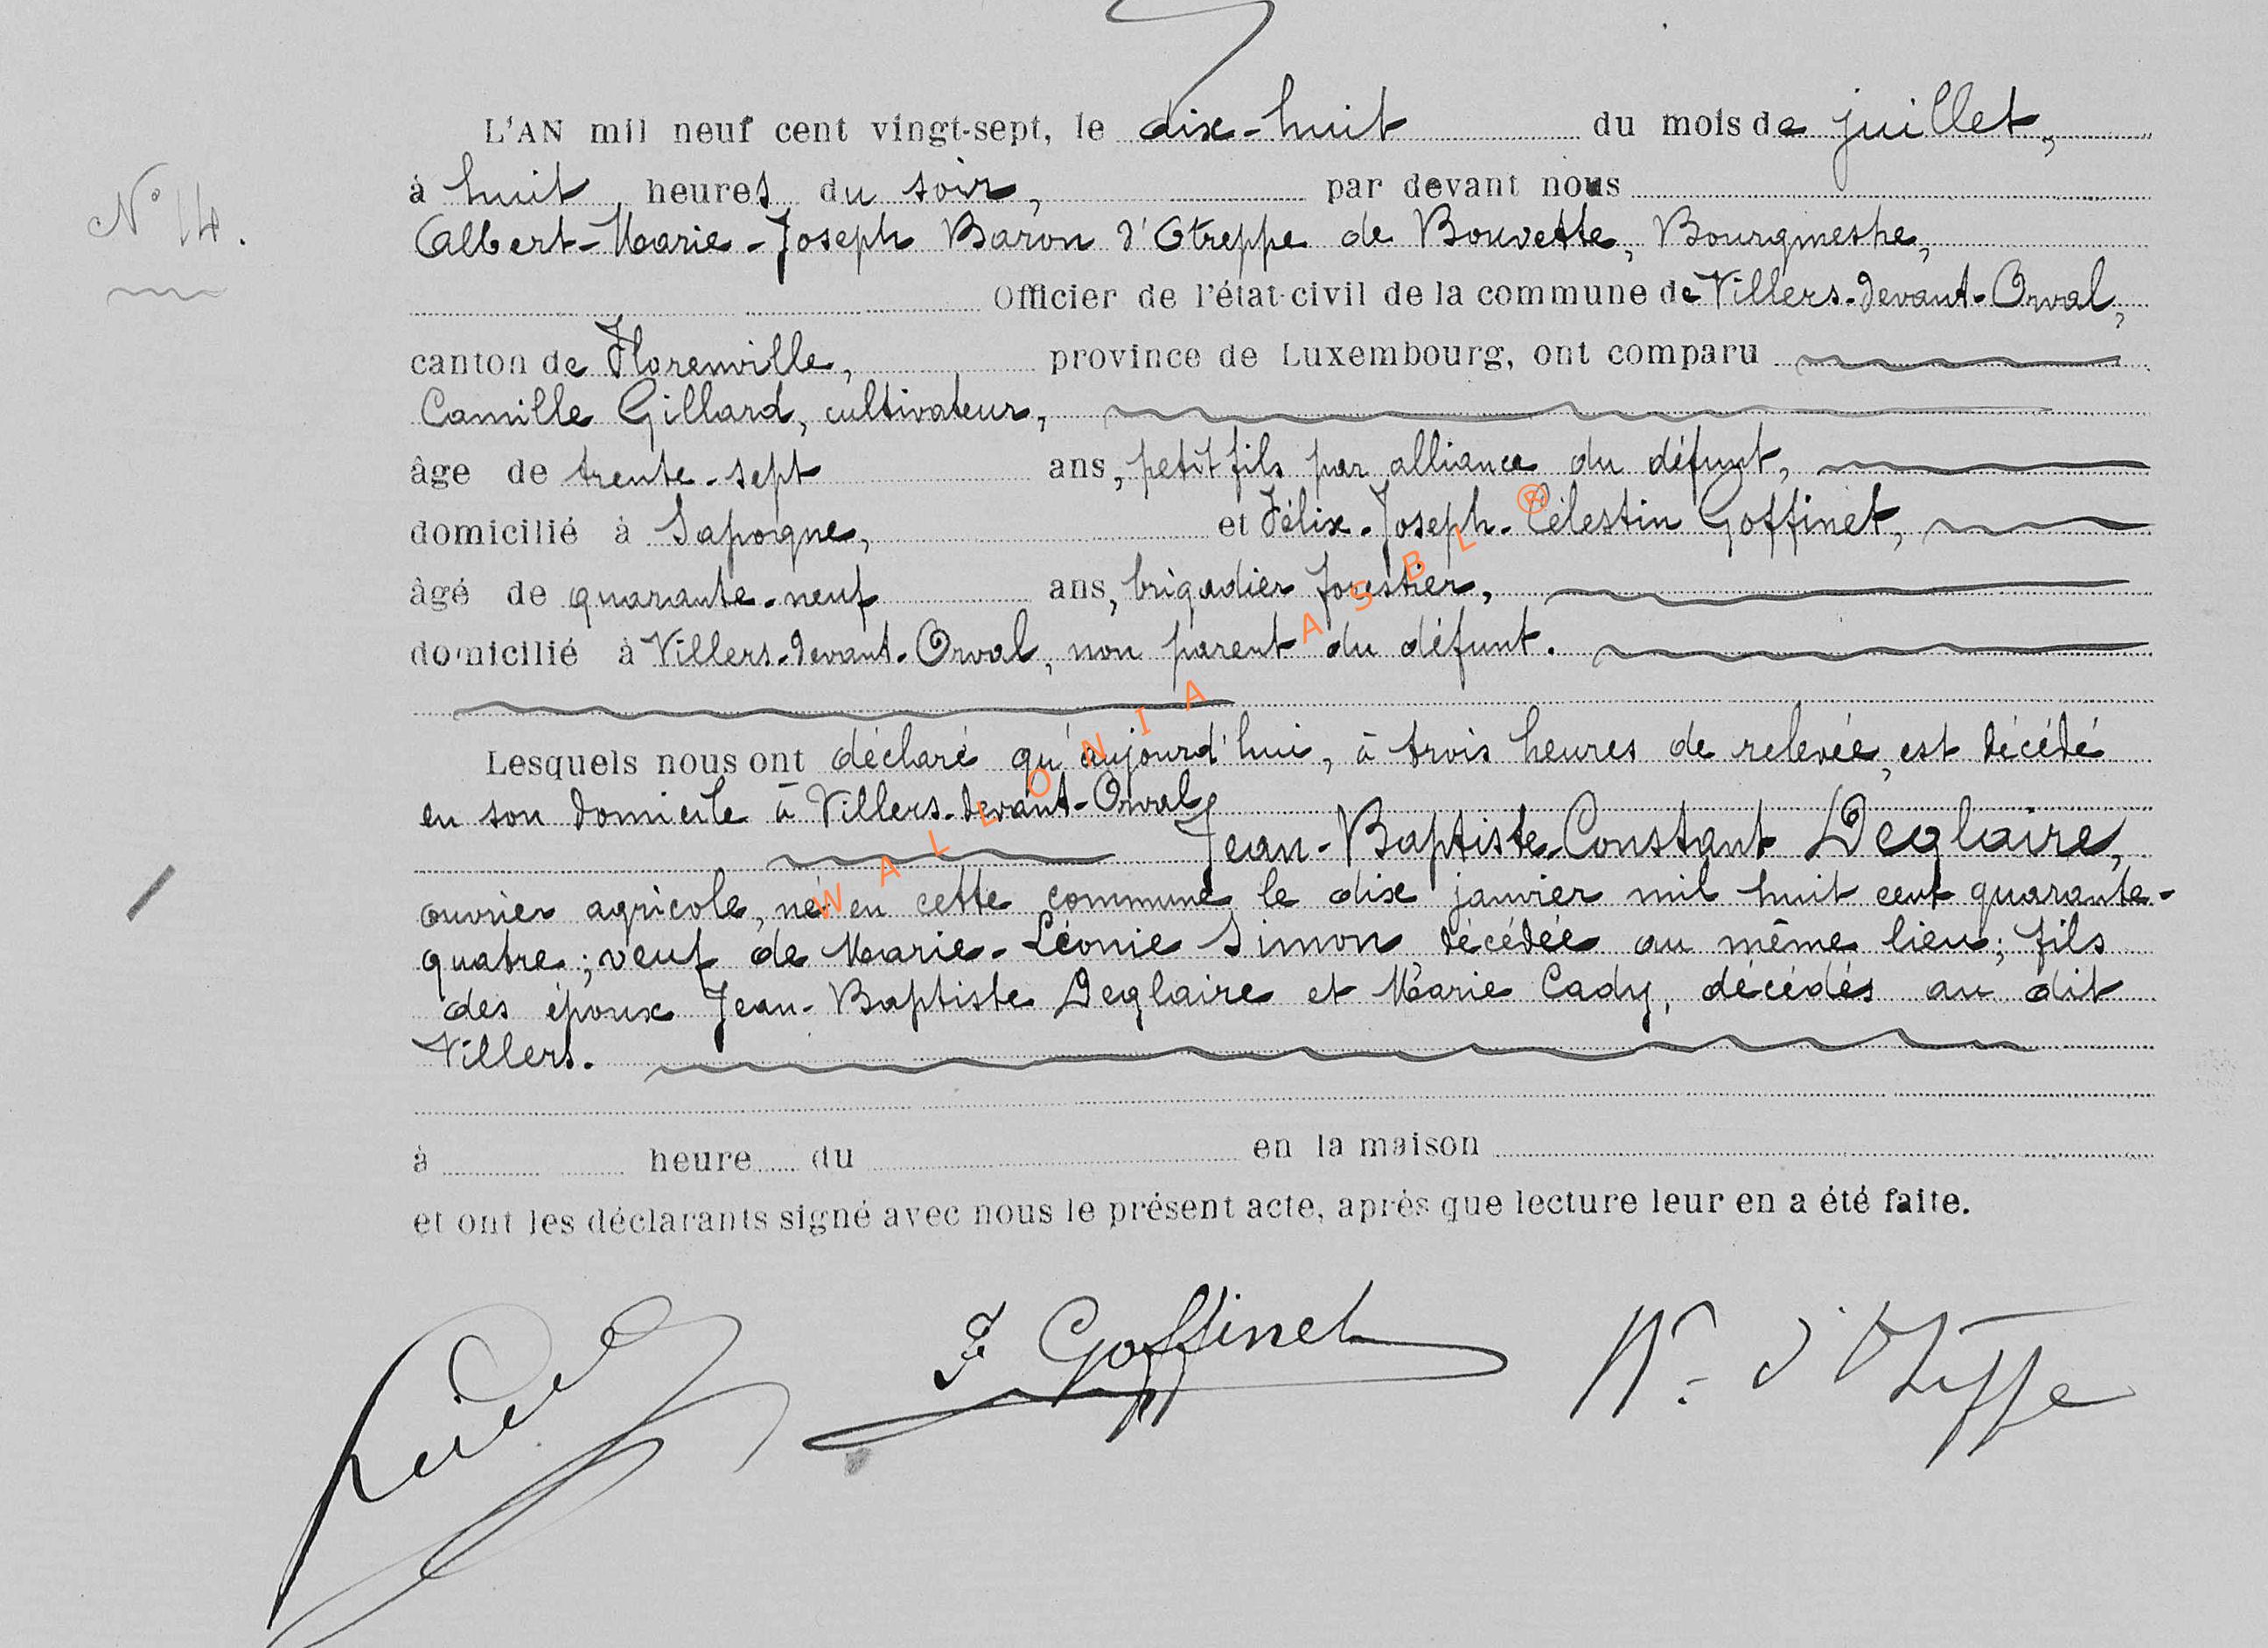 L'AN mil neuf cent vingt-sept, le dix-huit du mois de juillet,
à huit heures du soir, par devant nous
N° 14.
Albert-Marie-Joseph Baron d'Otreppe de Bouvette, Bourgmestre,
Officier de l'état-civil de la commune de Villers-devant-Orval,
canton de Florenville, province de Luxembourg, ont comparu
Camille Gillard, cultivateur,
âge de trente-sept ans, petit fils par alliance du défunt,
domicilié à Sapogne, et Félix-Joseph-Célestin Goffinet,
âgé de quarante-neuf ans, brigadier forestier,
domicilié à Villers-devant-Orval, non parent du défunt.
Lesquels nous ont déclaré qu'aujourd'hui, à trois heures de relevée, est décédé
en son domicile à Villers-devant-Orval,
Jean-Baptiste-Constant Deglaire,
ouvrier agricole, né en cette commune le dix janvier mil huit cent quarante-
quatre; veuf de Marie-Léonie Simon décédée au même lieu; fils
des époux Jean-Baptiste Deglaire et Marie Cady, décédés au dit
Villers.
à heure du en la maison
et ont les déclarants signé avec nous le présent acte, après que lecture leur en a été faite.
F Goffinet
WALLONIA ASBL ®